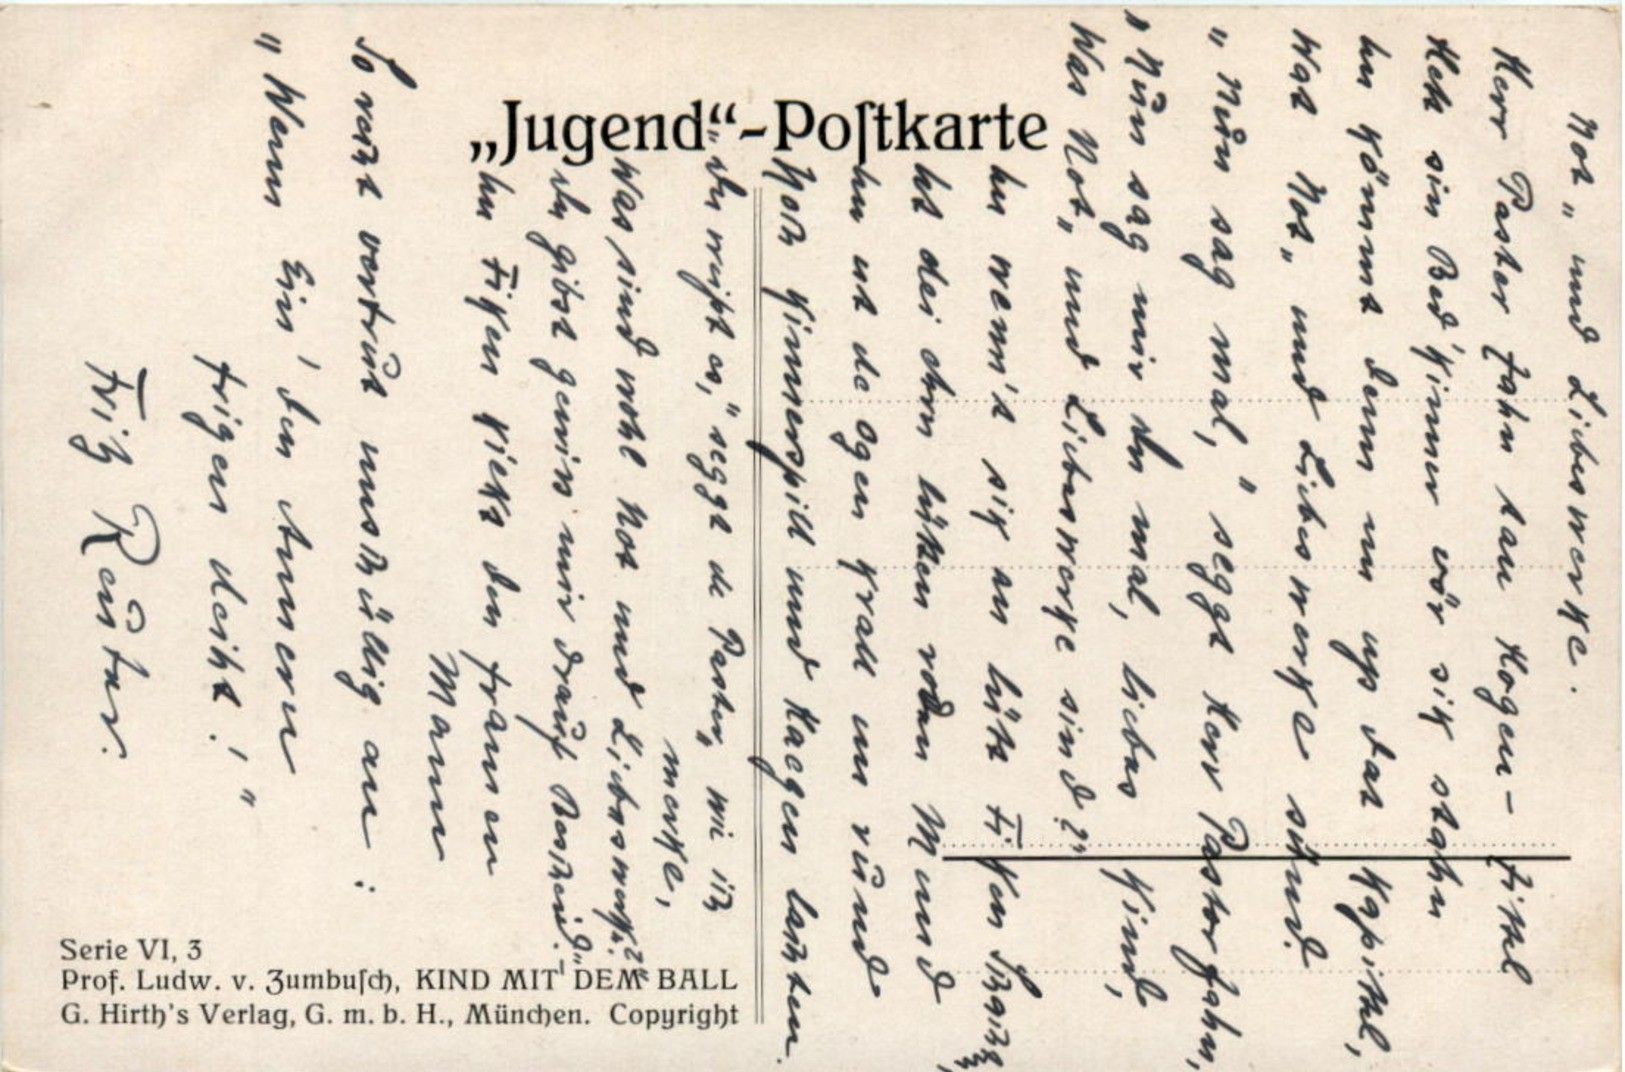 „Jugend“-Poſtkarte
Not „ und Liebeswerke.
Herr Paster Jahn tau Hogen-Zittel
Hett sin Bed'kinner vör sik stahn
Un kümmt denn nu up dat Kapittel,
Wat Not „ und Liebeswerke sünd.
„Nun sag mal," seggt Herr Pastor Jahn,
„Nun sag mir du mal, liebes Kind,
Was Not „ und Liebeswerke sind?"
Un wenn't sik an lütt Fiken
Ut dei ehren lütten roden Mund
Un ut de Ogen krall un rund
Noch Kinnerspill und Haegen lachten.
„Du weißt es," seggt de Paster, „wie ich
merke,
Was sind wohl Not und Liebeswerke?
Du gibst gewiss mir drauf Bescheid."
Un Fiken kickt den framen
Mann
So recht vertrut unschüllig an:
„Wenn Ein' den Annern
frigen deiht!"
Fritz Reuter.
Serie VI, 3
Prof. Ludw. v. Zumbuſch, KIND MIT DEM BALL
G. Hirth's Verlag, G. m. b. H., München. Copyright